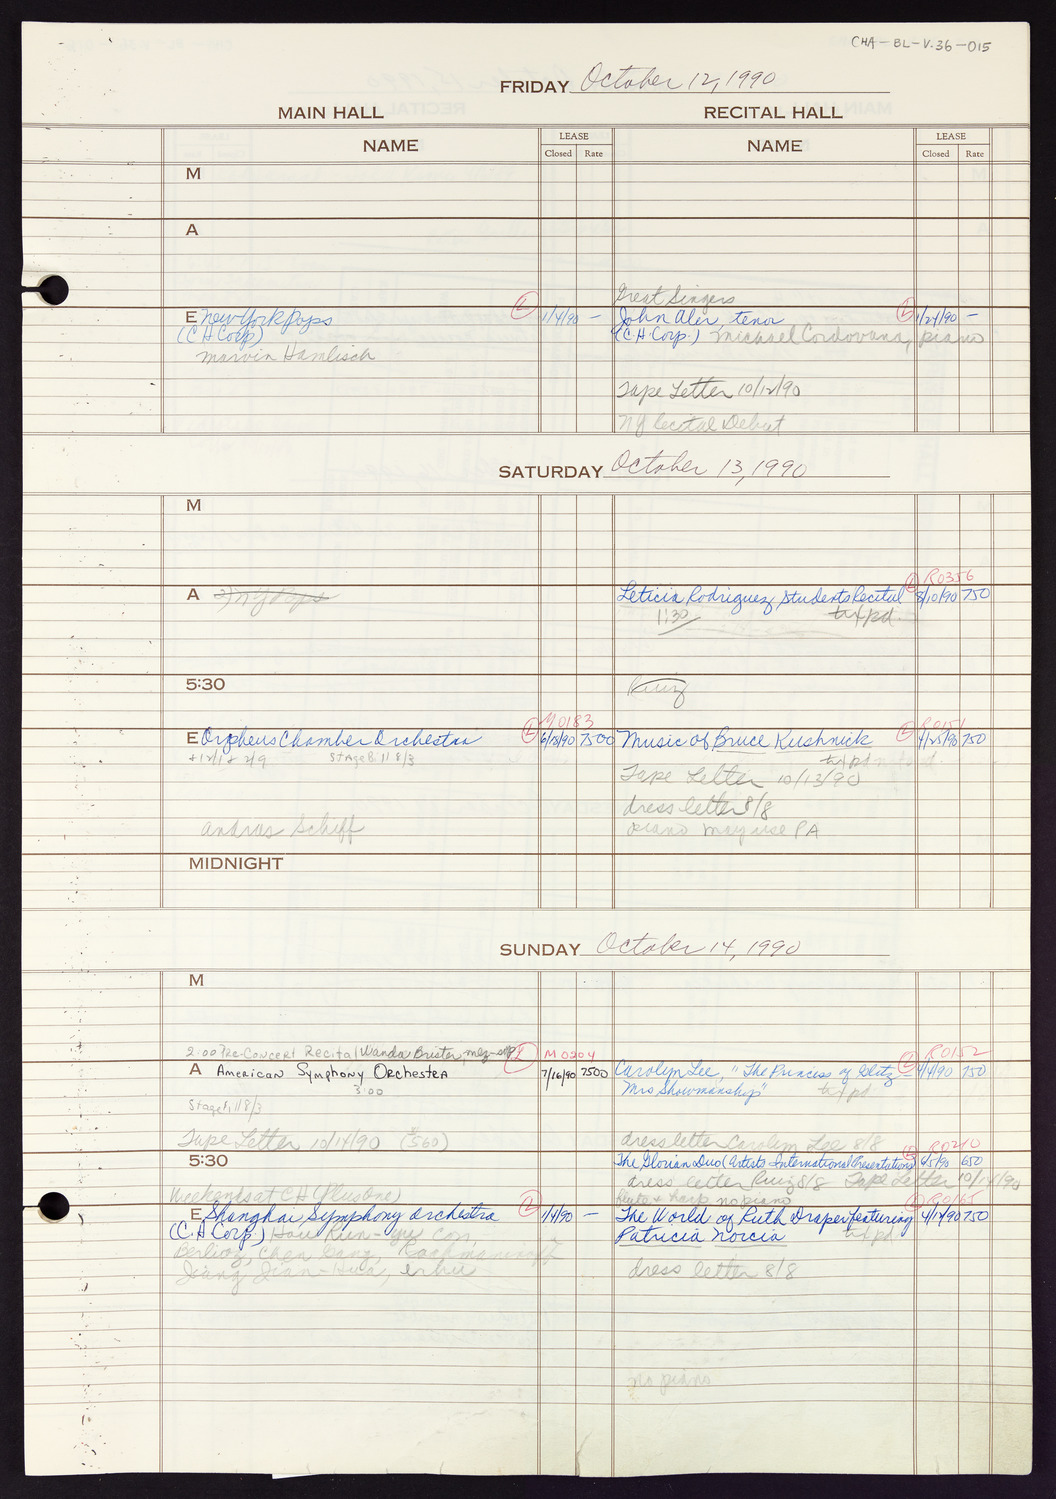 CHA-BL-V.36-015
FRIDAY October 12, 1990
MAIN HALL RECITAL HALL
NAME LEASE NAME LEASE
Closed Rate Closed Rate
M
A
Great Singers
E New York Pops L 1/4/90 — John Aler, tenor L 1/24/90 —
(C H Corp) (C.H. Corp.) Michael Cordovana, piano
Marvin Hamlisch
Tape Letter 10/12/90
NY Recital Debut
SATURDAY October 13, 1990
M
L R0356
A NY Pops Leticia Rodriguez Students Recital 8/10/90 750
1:30 txt pd.
5:30
M0183 R0151
E Orpheus Chamber Orchestra L 6/18/90 7500 Music of Bruce Kushnick L 4/25/90 750
+ 12/1 + 2/9 Stage 8; 11 8/3 txt pd
Tape Letter 10/13/90
dress letter 8/8
Andras Schiff piano may use PA
MIDNIGHT
SUNDAY October 14, 1990
M
2:00 Pre-Concert Recital Wanda Brister, mez-sop L M0204 R0152
A American Symphony Orchestra 7/16/90 7500 Carolyn Lee, "The Princess of Glitz L 4/4/90 750
3:00 Mrs Showmanship" txt pd
Stage 8; 11 8/3
Tape Letter 10/14/90 ($560) dress letter Carolyn Lee 8/8 R0210
5:30 The Glorian Duo (Artists International Presentations) 6/5/90 650
dress letter Ruiz 8/8 Tape Letter 10/14/90
Weekends at CH (Plus One) flute + harp no piano R0165
E Shanghai Symphony Orchestra L 1/4/90 — The World of Ruth Draper featuring 4/12/90 750
(C.H. Corp.) Hou Run-yu con, Patricia Norcia txt pd
Berlioz, Chen Gang, Rachmaninoff
Jiang Jian-Hua, erhu dress letter 8/8
no piano